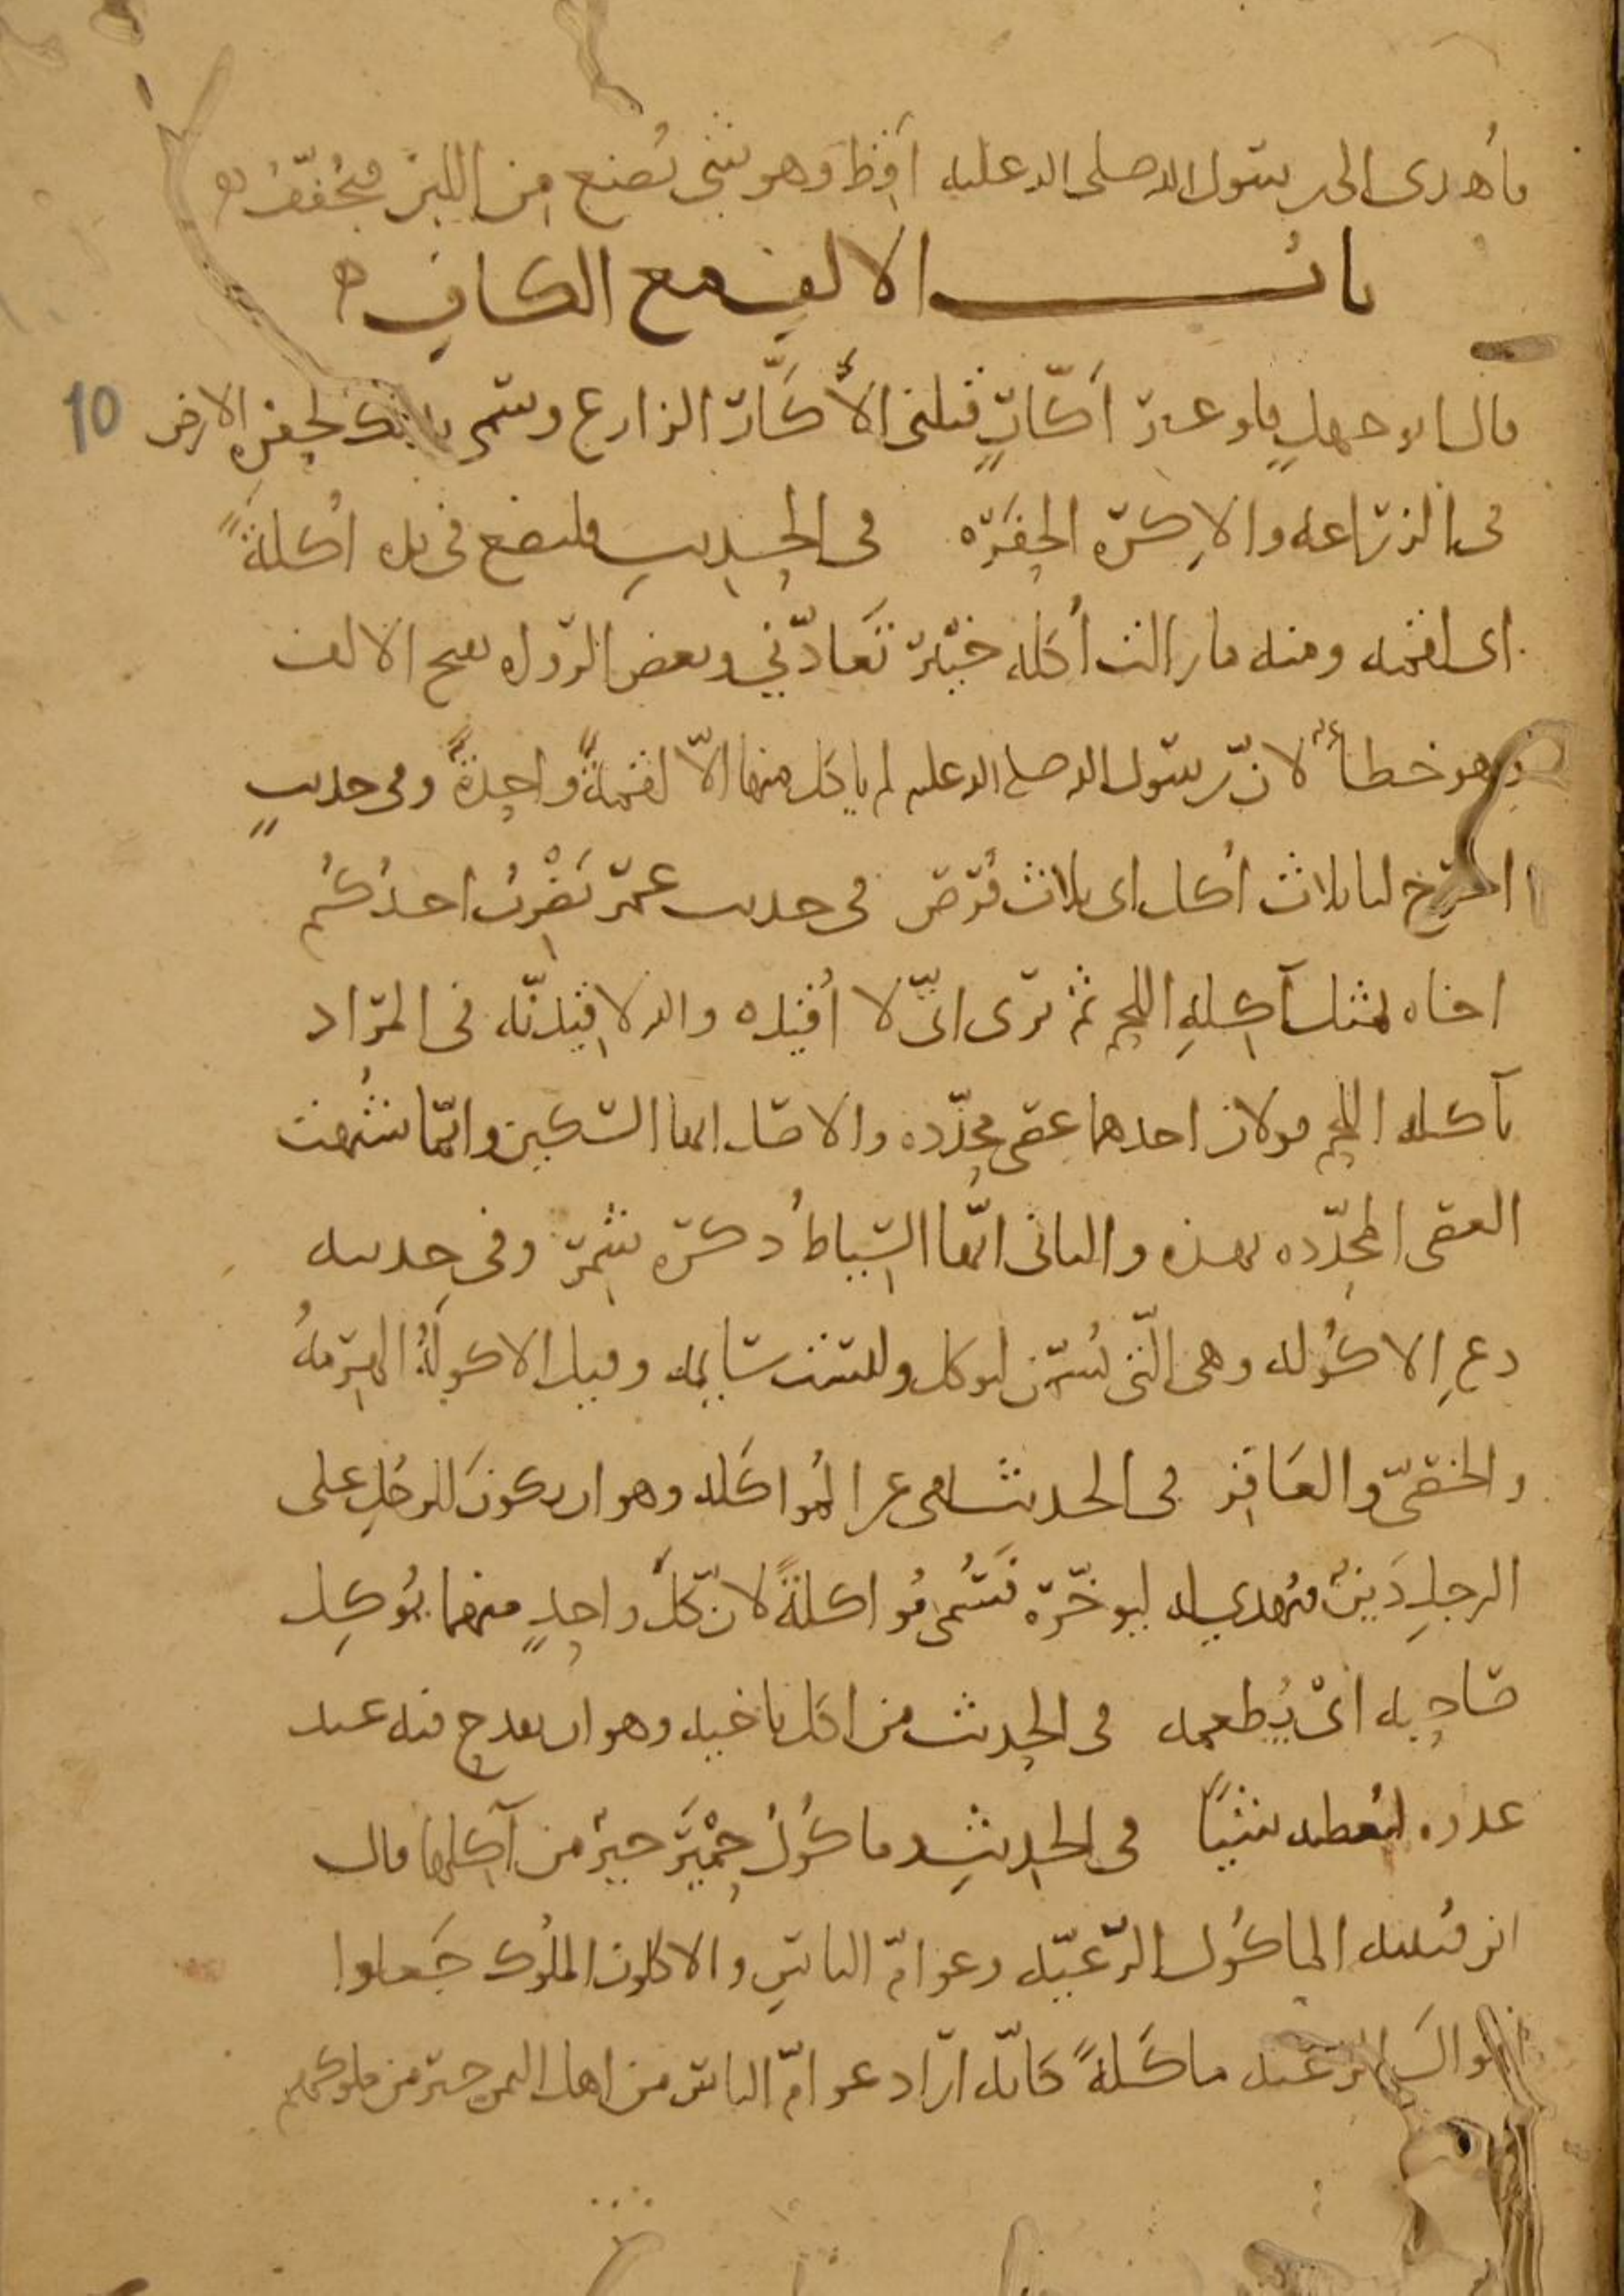 فأهدى إلى رسول الله صلى الله عليه أقِط وهو شي يُصنع من اللبن مُجَفَّفٌ
باب الالف مع الكاف
قال ابو جهلٍ فلو غير أكّارٍ قتلني الأكَّار الزارع وسمي بذلك لحفره الارض
في الزراعه والاكره الحفره في الحديث فليضع في يده اُكلةً
اى لقمه ومنه ما زالت اُكله خيبر تعادّني وبعض الرواه يفتح الالف
وهو خطأ لانّ رسول الله صلى الله عليه لم ياكل منها الّا لقمةً واحدةً وفي حديثٍ
اخرج لنا ثلاث اُكل اى ثلاث قُرَص في حديث عمر يَضْرِبُ احدُكُم
اخاه بمثل آكِلةِ اللحم ثم يرى انّي لا أُقيده والله لاقيدنّه في المراد
بآكله اللحم قولان احدهما عصى محدّده والاصل انها السكين وانّما شُبهت
العصى المحدّده بهذه والثاني انّها السياط ذكره شمر وفي حديثه
دعِ الاكُوله وهي الّتي تُسمّن لتوكل وليست سايمه وقيل الاكولةُ الهرمةُ
والخصيّ والعاقر في الحديث نهى عن المُواكله وهو ان يكون للرجلِ على
الرجلِ دَينٌ فيُهدي له ليوخّره فسُمى مُواكلةً لانّ كلَّ واحدٍ منهما يُوكِل
صاحِبه اى يُطعمه في الحديث من اكل باخيه وهو ان يقدح فيه عند
عدوه ليُعطيه شيئًا في الحديث ماكُولُ حِمْيَر خيرٌ من آكلها قال
ابن قتيبه الماكُول الرعيّه وعوامّ الناس والاكلون الملُوك جَعلوا
اموال الرعيه ماكَلةً كانّه اراد عوامّ الناس من اهل اليمن خير من ملوكهم
10